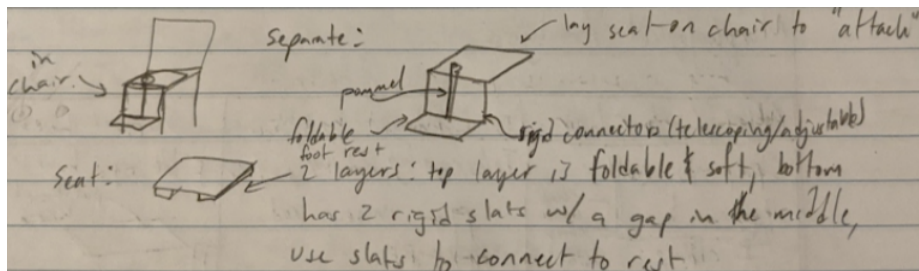 in
chair
Separate:
lay seat on chair to "attach"
pommel
foldable
foot rest
rigid connectors (telescoping/adjustable)
Seat:
2 layers: top layer is foldable & soft, bottom
has 2 rigid slats w/ a gap in the middle,
use slats to connect to rest